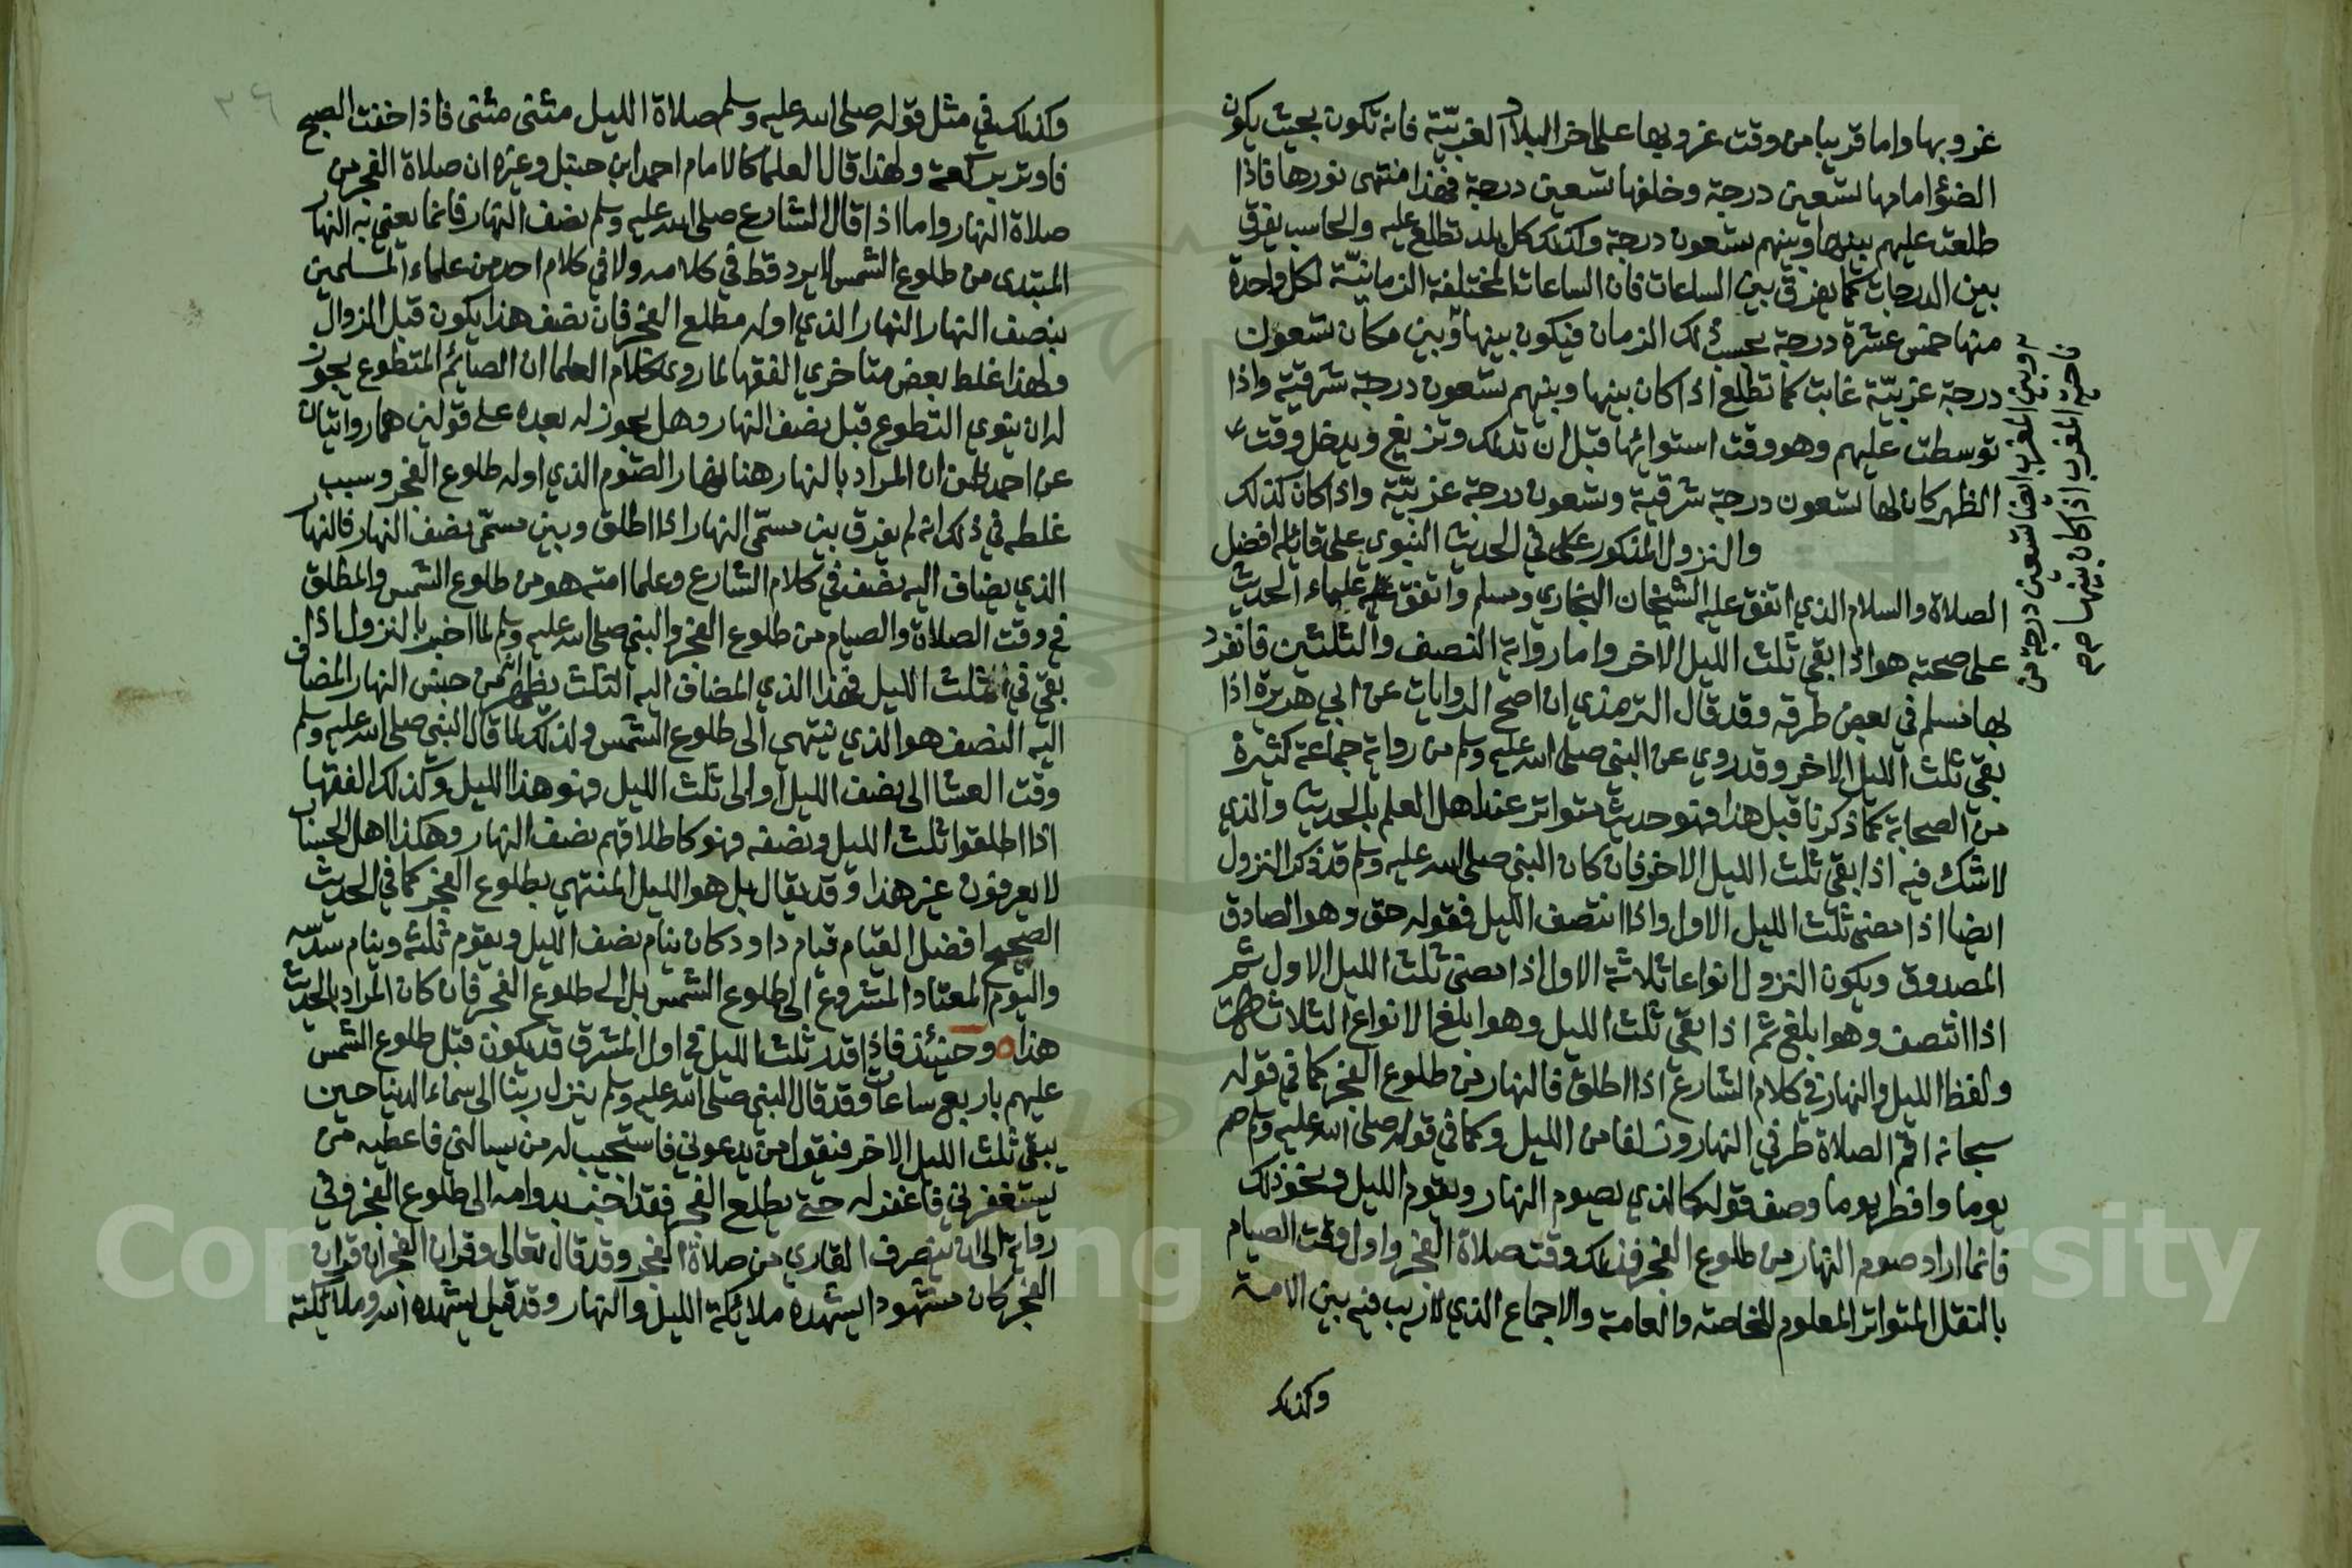 غروبها واما قريبا من وقت غروبها على اخر البلاد الغربية فانه تكون بحيث يكون
الضوء امامها تسعين درجة وخلفها تسعين درجة فهذا منتهى نورها فاذا
طلعت عليهم بينها وبينهم تسعون درجة وكذلك كل بلد تطلع عليه والحاسب يفرق
بين الدرجات كما يفرق بين الساعات فان الساعات المختلفة الزمانية لكل واحدة
منها خمس عشرة درجة بحسب ذلك الزمان فيكون بينها وبين مكان تسعون
درجة غربية غابت كما تطلع اذا كان بينها وبينهم تسعون درجة شرقية واذا
توسطت عليهم وهو وقت استوائها قبل ان تدلك وتزيغ ويدخل وقت
الظهر كان لها تسعون درجة شرقية وتسعون درجة غربية واذا كان كذلك
والنزول المذكور في الحديث النبوي على قائله افضل
الصلاة والسلام الذي اتفق عليه الشيخان البخاري ومسلم واتفق علماء الحديث
على صحته هو اذا بقي ثلث الليل الاخر واما رواية النصف والثلثين فانفرد
بها مسلم في بعض طرقه وقد قال الترمذي ان اصح الروايات عن ابي هريرة اذا
بقي ثلث الليل الاخر وقد روي عن النبي صلى الله عليه وسلم من رواية جماعة كثيرة
من الصحابة كما ذكرنا قبل هذا فهو حديث متواتر عند اهل العلم بالحديث والذي
لا شك فيه اذا بقي ثلث الليل الاخر فان كان النبي صلى الله عليه وسلم قد ذكر النزول
ايضا اذا مضى ثلث الليل الاول واذا انتصف الليل فقوله حق وهو الصادق
المصدوق ويكون النزول انواعا ثلاثة الاول اذا مضى ثلث الليل الاول ثم
اذا انتصف وهو ابلغ ثم اذا بقي ثلث الليل وهو ابلغ الانواع الثلاث
ولفظ الليل والنهار في كلام الشارع اذا اطلق فالنهار من طلوع الفجر كما في قوله
سبحانه اقم الصلاة طرفي النهار وزلفا من الليل وكما في قوله صلى الله عليه وسلم صم
يوما وافطر يوما وصف قوله كالذي يصوم النهار ويقوم الليل ونحو ذلك
فانما اراد صوم النهار من طلوع الفجر فذلك وقت صلاة الفجر واول وقت الصيام
بالنقل المتواتر المعلوم للخاصة والعامة والاجماع الذي لا ريب فيه بين الامة
وكذلك
وبين المغرب ايضا تسعين درجة من
ناحية المغرب اذا كان بينها
٣٦
وكذلك في مثل قوله صلى الله عليه وسلم صلاة الليل مثنى مثنى فاذا خفت الصبح
فاوتر بركعة ولهذا قال العلما كالامام احمد ابن حنبل وغيره ان صلاة الفجر من
صلاة النهار واما اذا قال الشارع صلى الله عليه وسلم نصف النهار فانما يعني به النهار
المبتدى من طلوع الشمس لا يرد قط في كلامه ولا في كلام احد من علماء المسلمين
بنصف النهار النهار الذي اوله مطلع الفجر فان نصف هذا يكون قبل الزوال
ولهذا غلط بعض متاخري الفقها لما روى كلام العلما ان الصائم المتطوع يجوز
له ان ينوي التطوع قبل نصف النهار وهل يجوز له بعده على قولين هما روايتان
عن احمد ظن ان المراد بالنهار هنا نهار الصوم الذي اوله طلوع الفجر وسبب
غلطه في ذلك انه لم يفرق بين مسمى النهار اذا اطلق وبين مسمى نصف النهار فالنهار
الذي يضاف اليه نصف في كلام الشارع وعلما امته هو من طلوع الشمس والمطلق
في وقت الصلاة والصيام من طلوع الفجر والنبي صلى الله عليه وسلم لما اخبر بالنزول اذا
بقي ثلث الليل فهذا الذي المضاف اليه الثلث يظهر انه من جنس النهار المضاف
اليه النصف هو الذي ينتهي الى طلوع الشمس ولذلك لما قال النبي صلى الله عليه وسلم
وقت العشا الى نصف الليل او الى ثلث الليل فهو هذا الليل وكذلك الفقها
اذا اطلقوا ثلث الليل ونصفه فهو كاطلاقهم نصف النهار وهكذا اهل الحساب
لا يعرفون غير هذا وقد يقال بل هو الليل المنتهي بطلوع الفجر كما في الحديث
الصحيح افضل القيام قيام داود كان ينام نصف الليل ويقوم ثلثه وينام سدسه
واليوم المعتاد المشروع الى طلوع الشمس بل الى طلوع الفجر فان كان المراد بالحديث
هذا ه وحينئذ فاذا قدر ثلث الليل في اول المشرق قد يكون قبل طلوع الشمس
عليهم باربع ساعات وقد قال النبي صلى الله عليه وسلم ينزل ربنا الى سماء الدنيا حين
يبقى ثلث الليل الاخر فيقول من يدعوني فاستجيب له من يسالني فاعطيه من
يستغفرني فاغفر له حتى يطلع الفجر فقد اخبر بدوامه الى طلوع الفجر وفي
رواية الى ان ينصرف القاري من صلاة الفجر وقد قال تعالى وقران الفجر ان قران
الفجر كان مشهودا يشهده ملائكة الليل والنهار وقد قيل يشهده الله وملائكته
Copyright © King Saud University